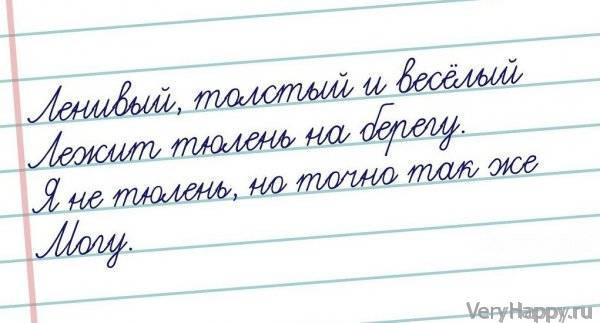 Ленивый, толстый и весёлый
Лежит тюлень на берегу.
Я не тюлень, но точно так же
Могу.
VeryHappy.ru